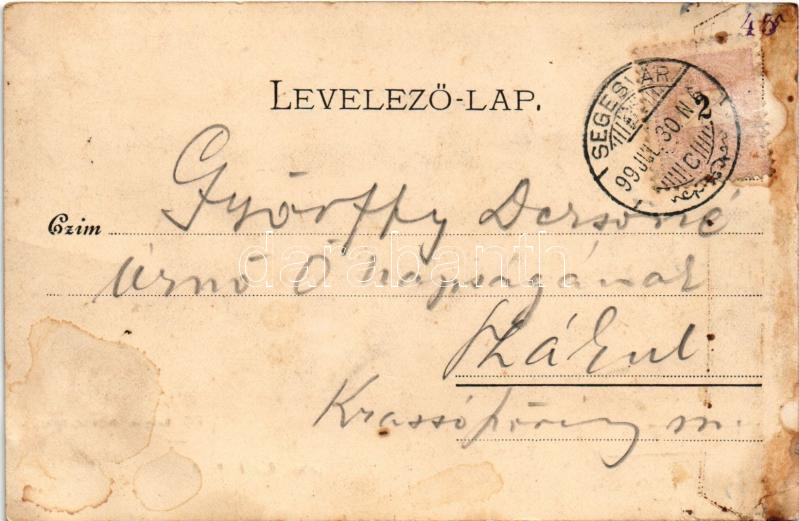 45
LEVELEZŐ-LAP.
SEGESVÁR
99 JUL. 30 N 2
C
Czim Györffy Dezsőné
Úrnő Ő Nagyságának
Zákul
Krassó m.
darabanth